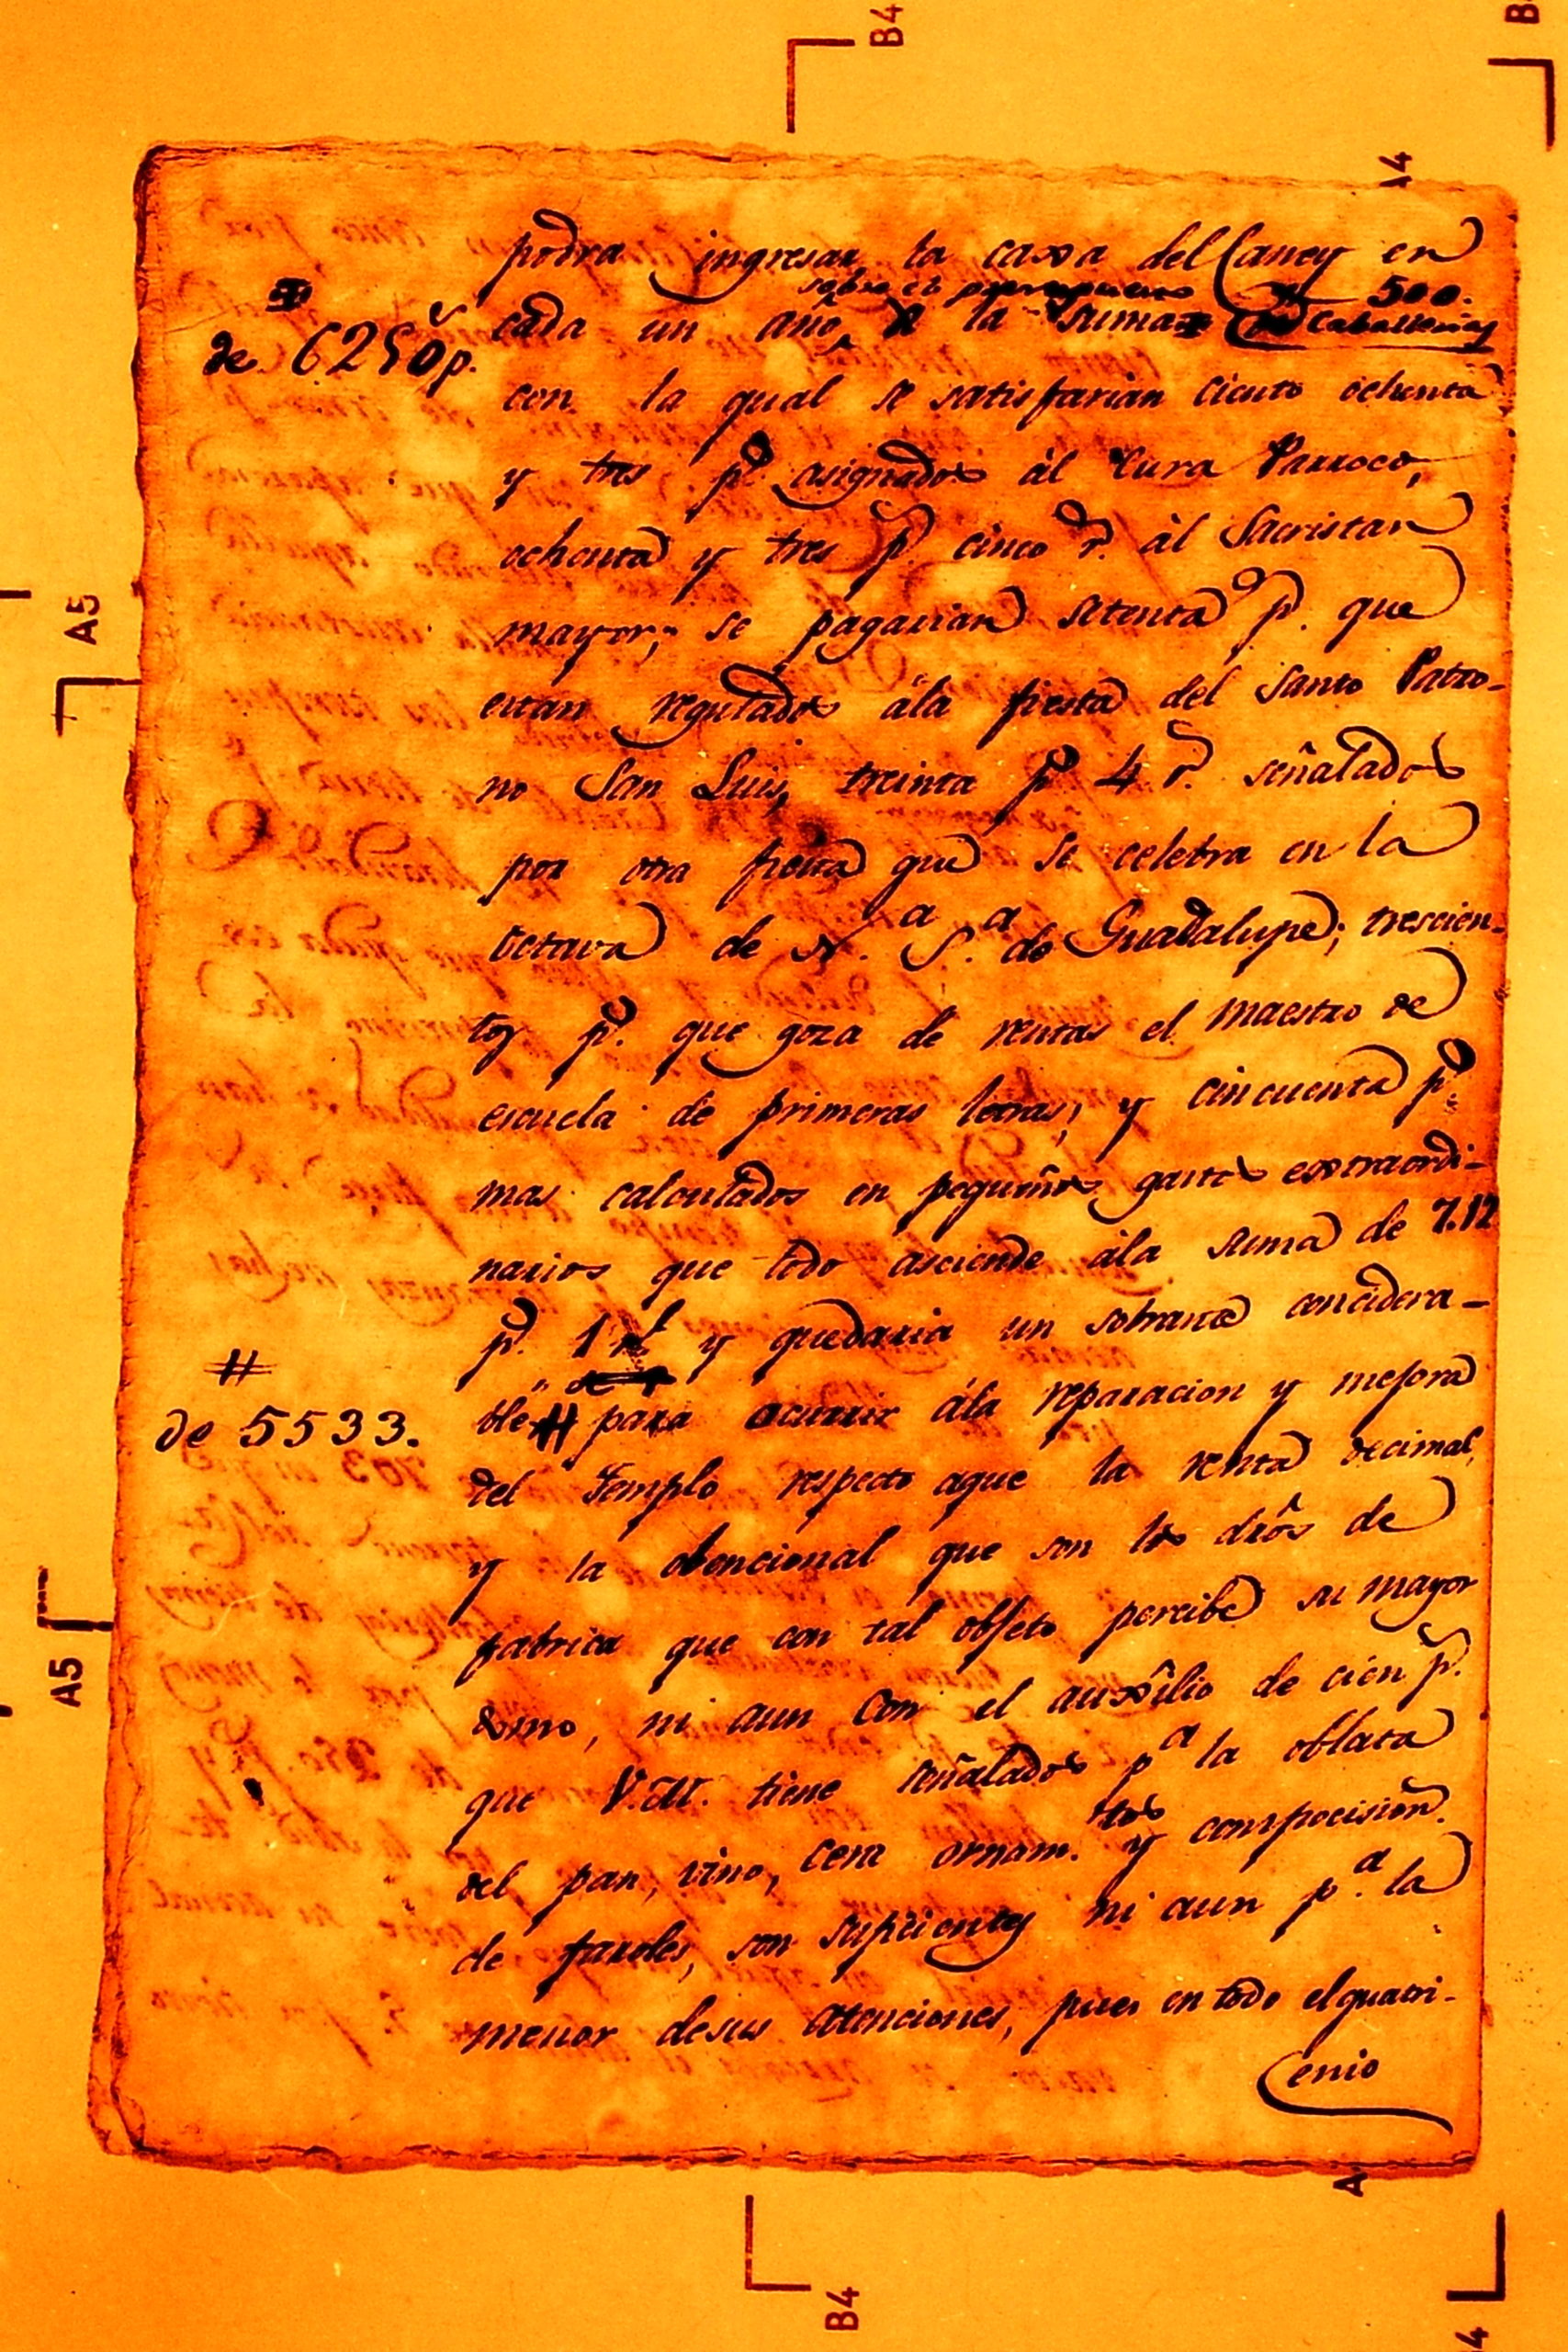 podra ingresar la caxa del Caney en
sobre el 500.
cada un año, la suma Caballerias
de 6250 p.
con la qual se satisfarian ciento ochenta
y tres p.s asignados ál Cura Parroco,
ochenta y tres p.s cinco r.s ál Sacristan
mayor; se pagarian setenta p.s que
estan regulados ála fiesta del Santo Patro-
no San Luis, treinta p.s 4 r.s señalados
por otra fiesta que se celebra en la
octava de N.a S.a de Guadalupe; trescien-
tos p.s que goza de rentas el maestro de
escuela de primeras letras; y cincuenta p.s
mas calculados en pequeños gastos extraordi-
narios que todo asciende ála suma de 7.17
p.s 1 r.l y quedaria un sobrante concidera-
#
de 5533.
ble # para ocurrir ála reparacion y mejora
del Templo respecto aque la renta decimal,
y la obencional que son los dros de
fabrica que con tal objeto percibe su mayor
dmo, ni aun con el auxîlio de cien p.s
que V.M. tiene señalados p.a la oblata
del pan, vino, cera ornam.tos y compocision
de faroles, son suficientes ni aun p.a la
menor desus atenciones, pues en todo el quatri-
enio
A4
B4
A5
A5
B4